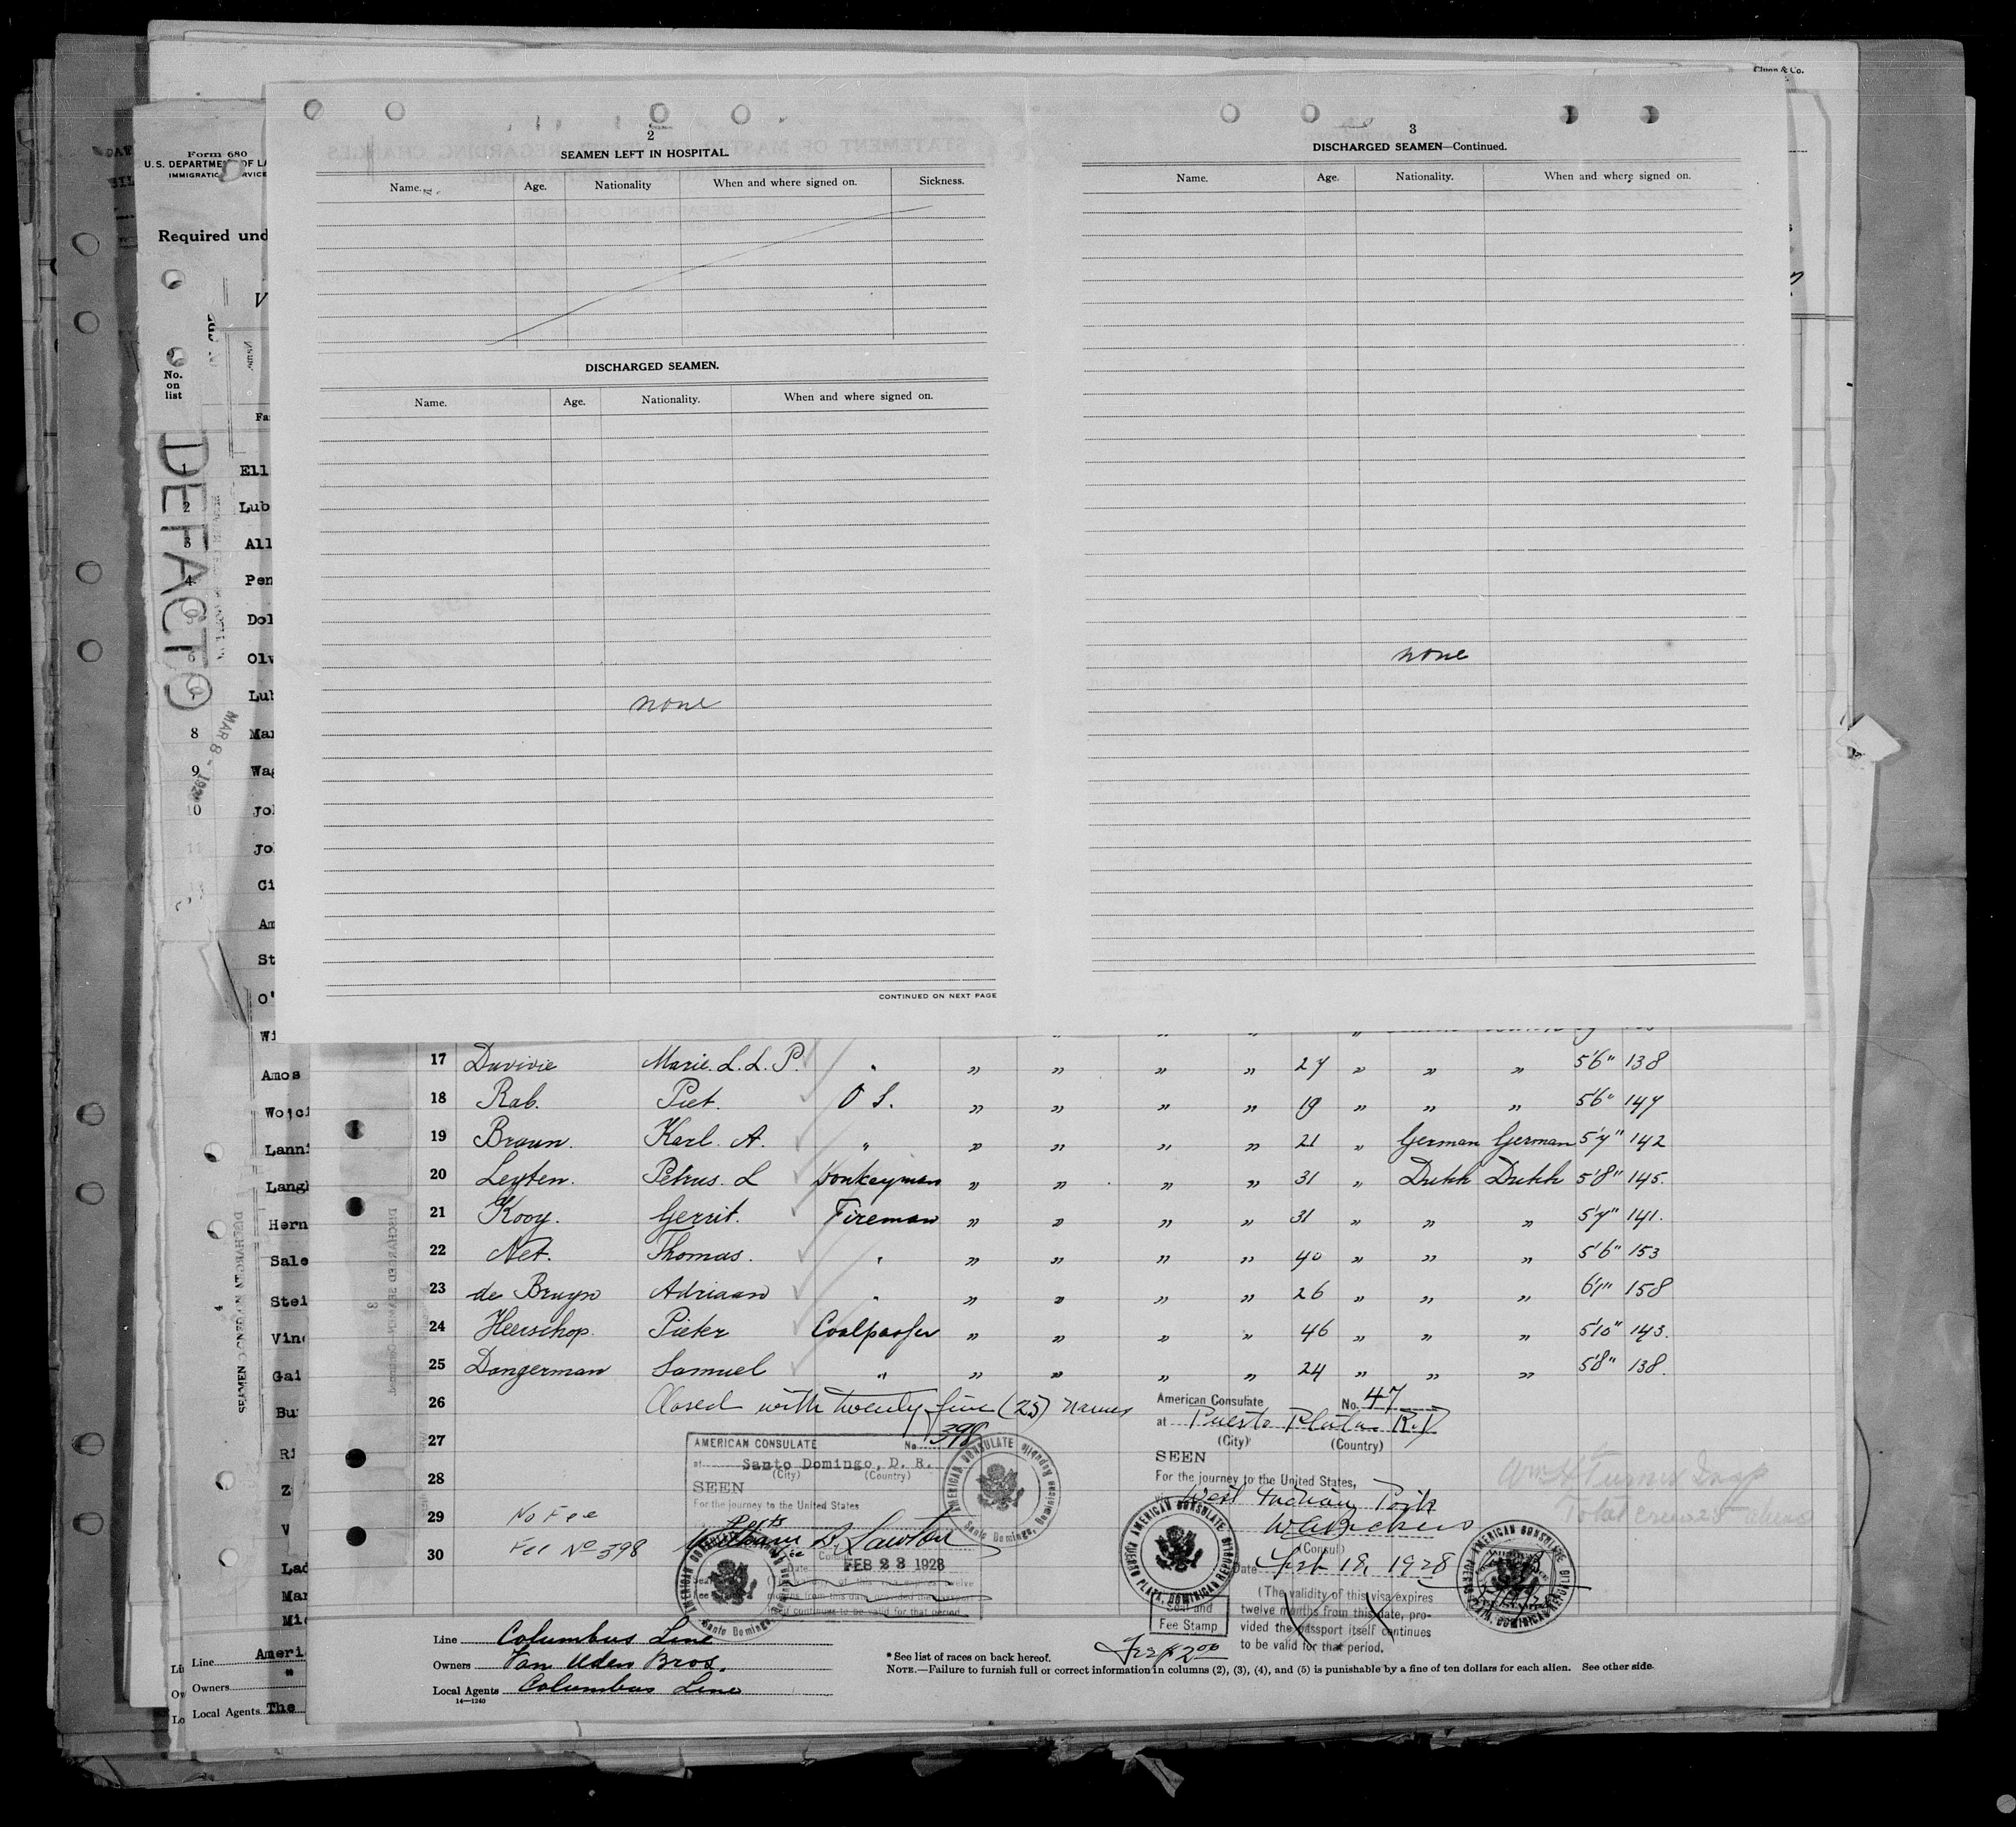 Form 680
U.S. DEPARTMENT OF LA
IMMIGRATION SERVICE
Required und
V
No.
on
list
Fa
DEFACTO
MAR 8 - 192
1 Ell
2 Lub
3 All
4 Pen
Dol
Olv
Lub
8 Mar
9 Wag
10 Joh
11 Jo
Ci
Am
St
O'
Wi
Amos
Wojci
Lanni
Langh
Hern
Sale
Stei
Vinc
Gai
Bu
Ri
Z
V
Lad
Mar
Mic
Line Ameri
Owners "
Local Agents The
2
SEAMEN LEFT IN HOSPITAL.
Name. Age. Nationality When and where signed on. Sickness.
DISCHARGED SEAMEN.
Name. Age. Nationality. When and where signed on.
none
CONTINUED ON NEXT PAGE
3
DISCHARGED SEAMEN—Continued.
Name. Age. Nationality. When and where signed on.
none
17 Duvivie Marie. L. L. P. " " " " " 27 " " " 5'6" 138
18 Rab. Piet. O S. " " " " 19 " " " 5'6" 147
19 Braun. Karl. A. " " " " " 21 " German German 5'7" 142
20 Leyten. Petrus. L Donkeyman " " " " 31 " Dutch Dutch 5'8" 145.
21 Kooy. Gerrit. Fireman " " " " 31 " " " 5'7" 141.
22 Net. Thomas. " " " " " 40 " " " 5'6" 153
23 de Bruyn Adriaan " " " " " 26 " " " 6'1" 158
24 Heerschop. Pieter Coalpasser " " " " 46 " " " 5'10" 143.
25 Dongerman Samuel " " " " " 24 " " " 5'8" 138.
26 Closed with twenty five (25) names
27
28
29 No Fee
30 Fee No 398
AMERICAN CONSULATE No. 398
at Santo Domingo, D. R.
(City) (Country)
SEEN
For the journey to the United States
Ports
William B. Lawton
Vice Consul
Date FEB 23 1928
AMERICAN CONSULATE
Santo Domingo, Dominican Republic
American Consulate No. 47
at Puerto Plata R.D
(City) (Country)
SEEN
For the journey to the United States,
West Indian Ports
(Consul)
Date Feb 18, 1928
(The validity of this visa expires
twelve months from this date, pro-
vided the passport itself continues
to be valid for that period.
AMERICAN CONSULATE
PUERTO PLATA, DOMINICAN REPUBLIC
Seal and
Fee Stamp
Fee $2.00
Wm H Turner Insp
Total crew 25 aliens
Line Columbus Line
Owners Van Uden Bros.
Local Agents Columbus Line
14—1240
* See list of races on back hereof.
NOTE.—Failure to furnish full or correct information in columns (2), (3), (4), and (5) is punishable by a fine of ten dollars for each alien. See other side.